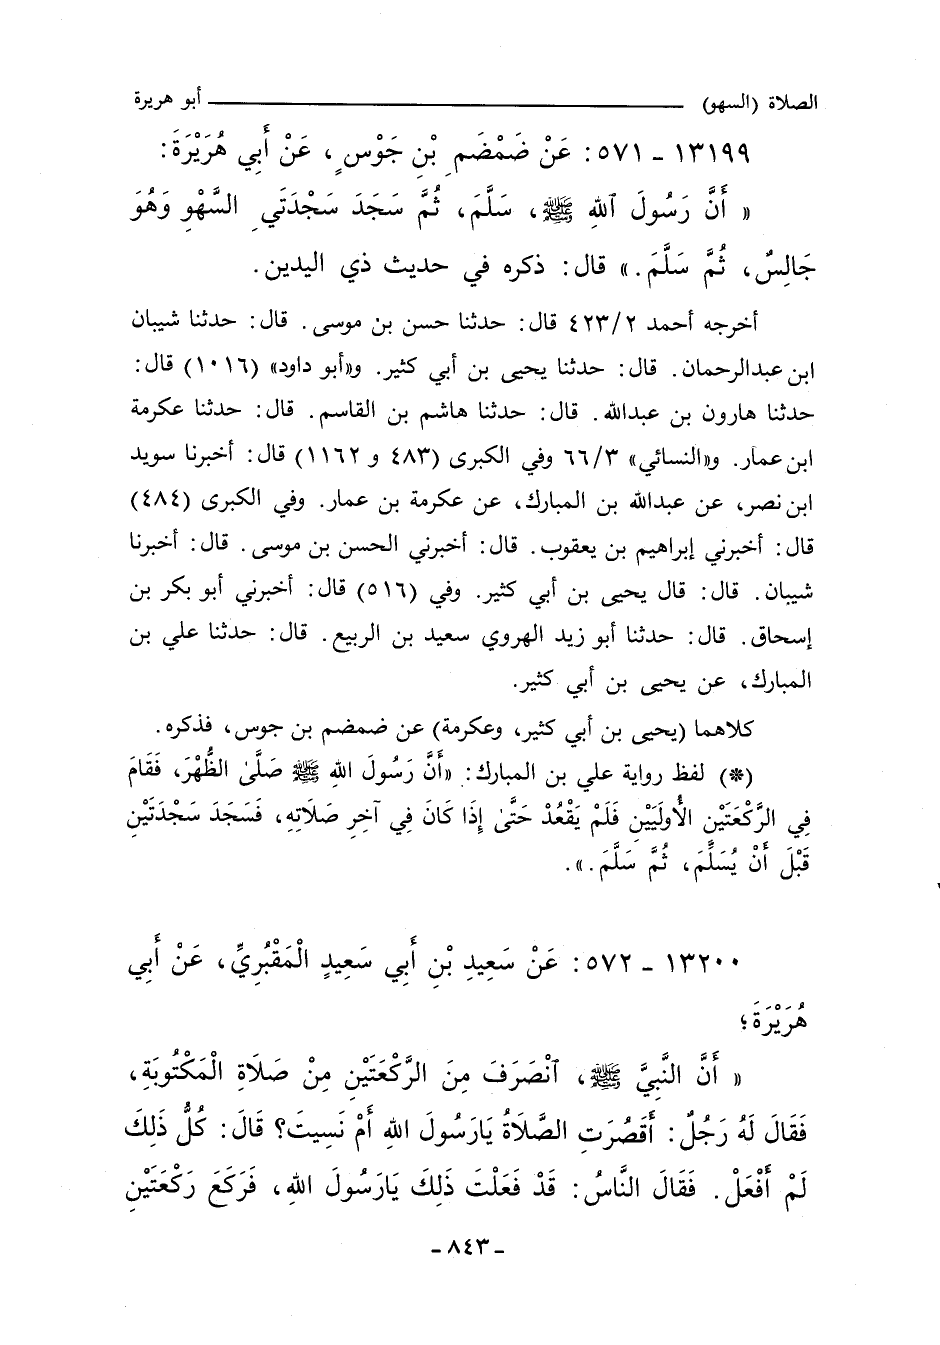 الصلاة (السهو) أبو هريرة
١٣١٩٩ - ٥٧١: عَنْ ضَمْضَمِ بْنِ جَوْسٍ، عَنْ أَبِي هُرَيْرَةَ:
« أَنَّ رَسُولَ ٱللهِ ﷺ، سَلَّمَ، ثُمَّ سَجَدَ سَجْدَتَيِ السَّهْوِ وَهُوَ
جَالِسٌ، ثُمَّ سَلَّمَ.» قال: ذكره في حديث ذي اليدين.
أخرجه أحمد ٤٢٣/٢ قال: حدثنا حسن بن موسى. قال: حدثنا شيبان
ابن عبدالرحمان. قال: حدثنا يحيى بن أبي كثير. و«أبو داود» (١٠١٦) قال:
حدثنا هارون بن عبدالله. قال: حدثنا هاشم بن القاسم. قال: حدثنا عكرمة
ابن عمار. و«النسائي» ٦٦/٣ وفي الكبرى (٤٨٣ و ١١٦٢) قال: أخبرنا سويد
ابن نصر، عن عبدالله بن المبارك، عن عكرمة بن عمار. وفي الكبرى (٤٨٤)
قال: أخبرني إبراهيم بن يعقوب. قال: أخبرني الحسن بن موسى. قال: أخبرنا
شيبان. قال: قال يحيى بن أبي كثير. وفي (٥١٦) قال: أخبرني أبو بكر بن
إسحاق. قال: حدثنا أبو زيد الهروي سعيد بن الربيع. قال: حدثنا علي بن
المبارك، عن يحيى بن أبي كثير.
كلاهما (يحيى بن أبي كثير، وعكرمة) عن ضمضم بن جوس، فذكره.
(*) لفظ رواية علي بن المبارك: «أَنَّ رَسُولَ اللهِ ﷺ صَلَّىٰ الظُّهْرَ، فَقَامَ
فِي الرَّكْعَتَيْنِ الأُولَيَيْنِ فَلَمْ يَقْعُدْ حَتَّىٰ إِذَا كَانَ فِي آخِرِ صَلَاتِهِ، فَسَجَدَ سَجْدَتَيْنِ
قَبْلَ أَنْ يُسَلِّمَ، ثُمَّ سَلَّمَ.».
١٣٢٠٠ - ٥٧٢: عَنْ سَعِيدِ بْنِ أَبِي سَعِيدٍ الْمَقْبُرِيِّ، عَنْ أَبِي
هُرَيْرَةَ؛
« أَنَّ النَّبِيَّ ﷺ، ٱنْصَرَفَ مِنَ الرَّكْعَتَيْنِ مِنْ صَلَاةِ الْمَكْتُوبَةِ،
فَقَالَ لَهُ رَجُلٌ: أَقَصُرَتِ الصَّلَاةُ يَارَسُولَ اللهِ أَمْ نَسِيتَ؟ قَالَ: كُلُّ ذَلِكَ
لَمْ أَفْعَلْ. فَقَالَ النَّاسُ: قَدْ فَعَلْتَ ذَلِكَ يَارَسُولَ اللهِ، فَرَكَعَ رَكْعَتَيْنِ
- ٨٤٣ -